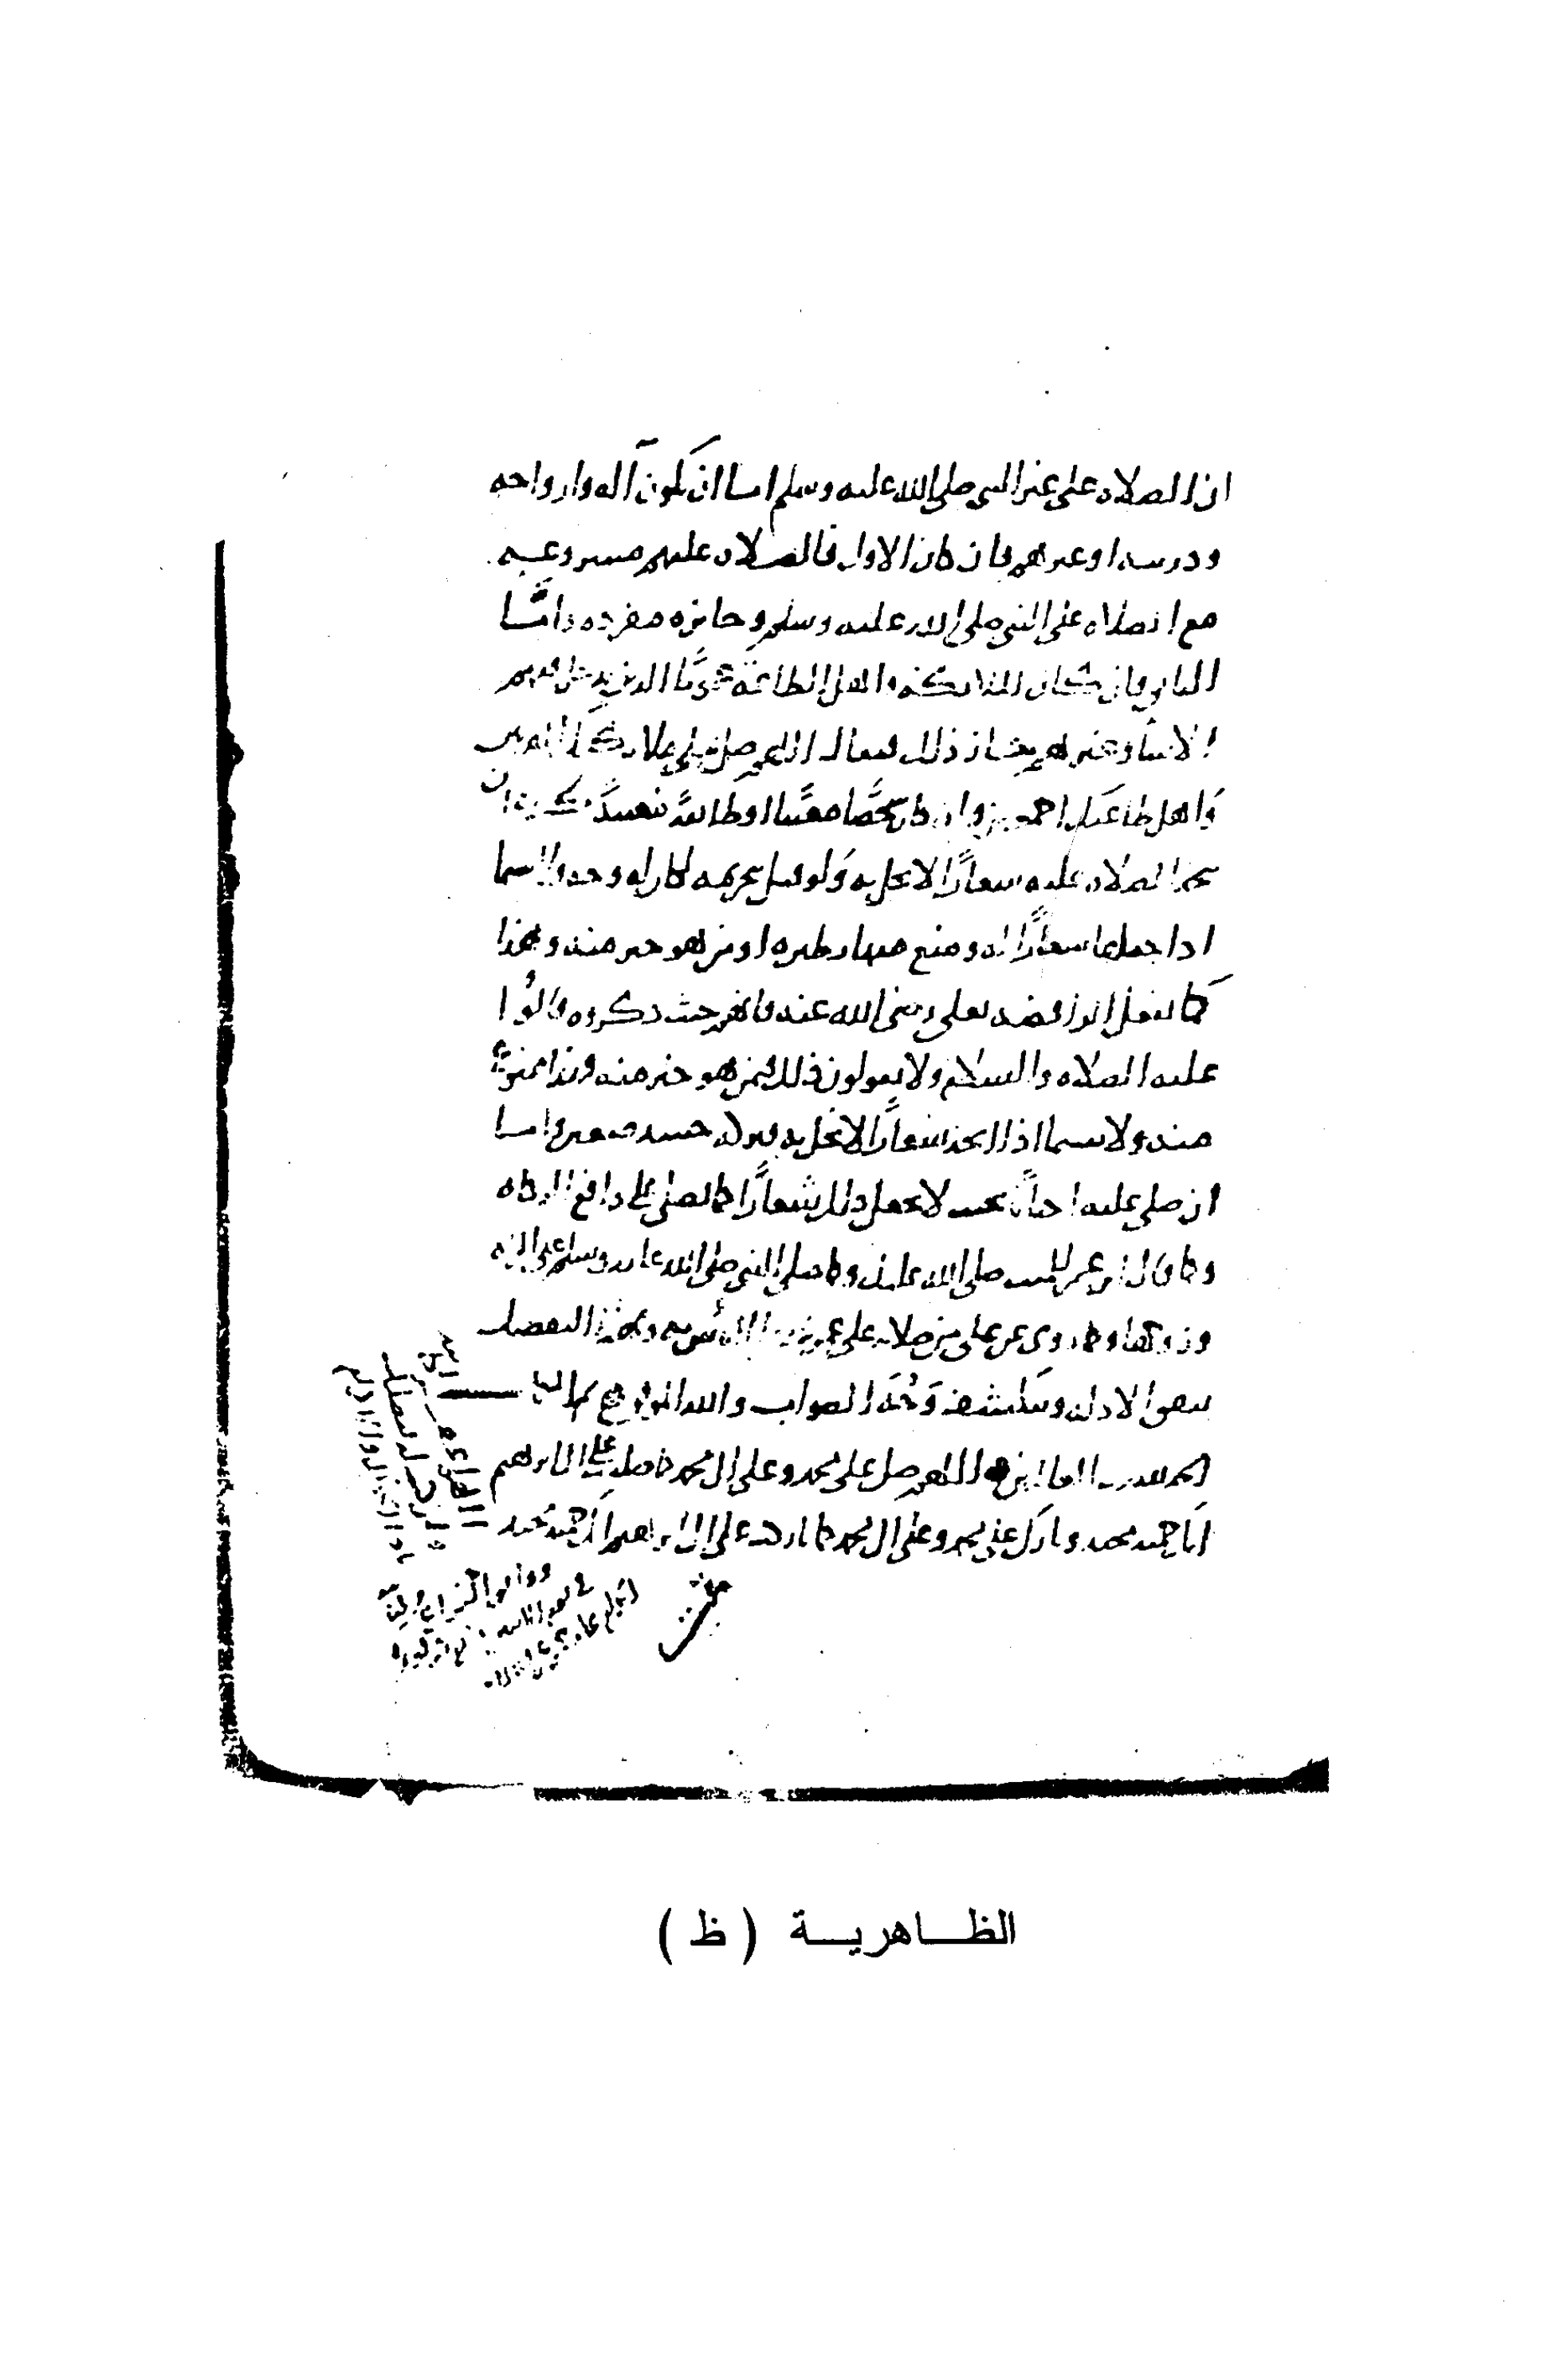 ان الصلاه على غير النبي صلى الله عليه وسلم اما ان يكون آله وازواجه
وذريته او غيرهم فان كان الاول فالصلاه عليهم مشروعه
مع الصلاه على النبي صلى الله عليه وسلم وجائزه مفرده واما
الثاني فان كان الملائكه واهل الطاعه عموما الذين يدخل فيهم
الانبيا وغيرهم جاز ذلك فيقال اللهم صل على ملائكتك المقربين
واهل طاعتك اجمعين وان كان شخصا معينا او طائفة معينة كره ان
يتخذ الصلاه عليه شعارا لا يخل به ولو قيل بتحريمه لكان له وجه ولا سيما
اذا جعلها شعارا له ومنع منها نظيره او من هو خير منه وهذا
كما تفعل الرافضه بعلي رضي الله عنه فانهم حيث ذكروه قالوا
عليه الصلاه والسلام ولا يقولون ذلك فيمن هو خير منه فهذا ممنوع
منه ولا سيما اذا اتخذ شعارا لا يخل به فتركه حينئذ متعين واما
ان صلى عليه احيانا بحيث لا يجعل ذلك شعارا كما يصلى على دافع الزكاه
وكما قال ابن عمر للميت صلى الله عليك وكما صلى النبي صلى الله عليه وسلم على المراه
وزوجها وكما روي عن علي من صلاته على عمر فهذا لا باس به وبهذا التفصيل
تتفق الادله وينكشف وجه الصواب والله الموفق تم الكتاب
الحمد لله رب العالمين اللهم صل على محمد وعلى ال محمد كما صليت على ال ابراهيم
انك حميد مجيد وبارك على محمد وعلى ال محمد كما باركت على ال ابراهيم انك حميد مجيد
الظاهرية ( ظ )